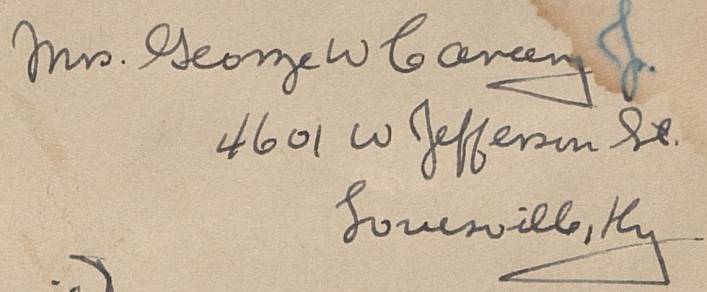 Mrs. George W Careey Jr.
4601 W Jefferson St.
Louisville, Ky